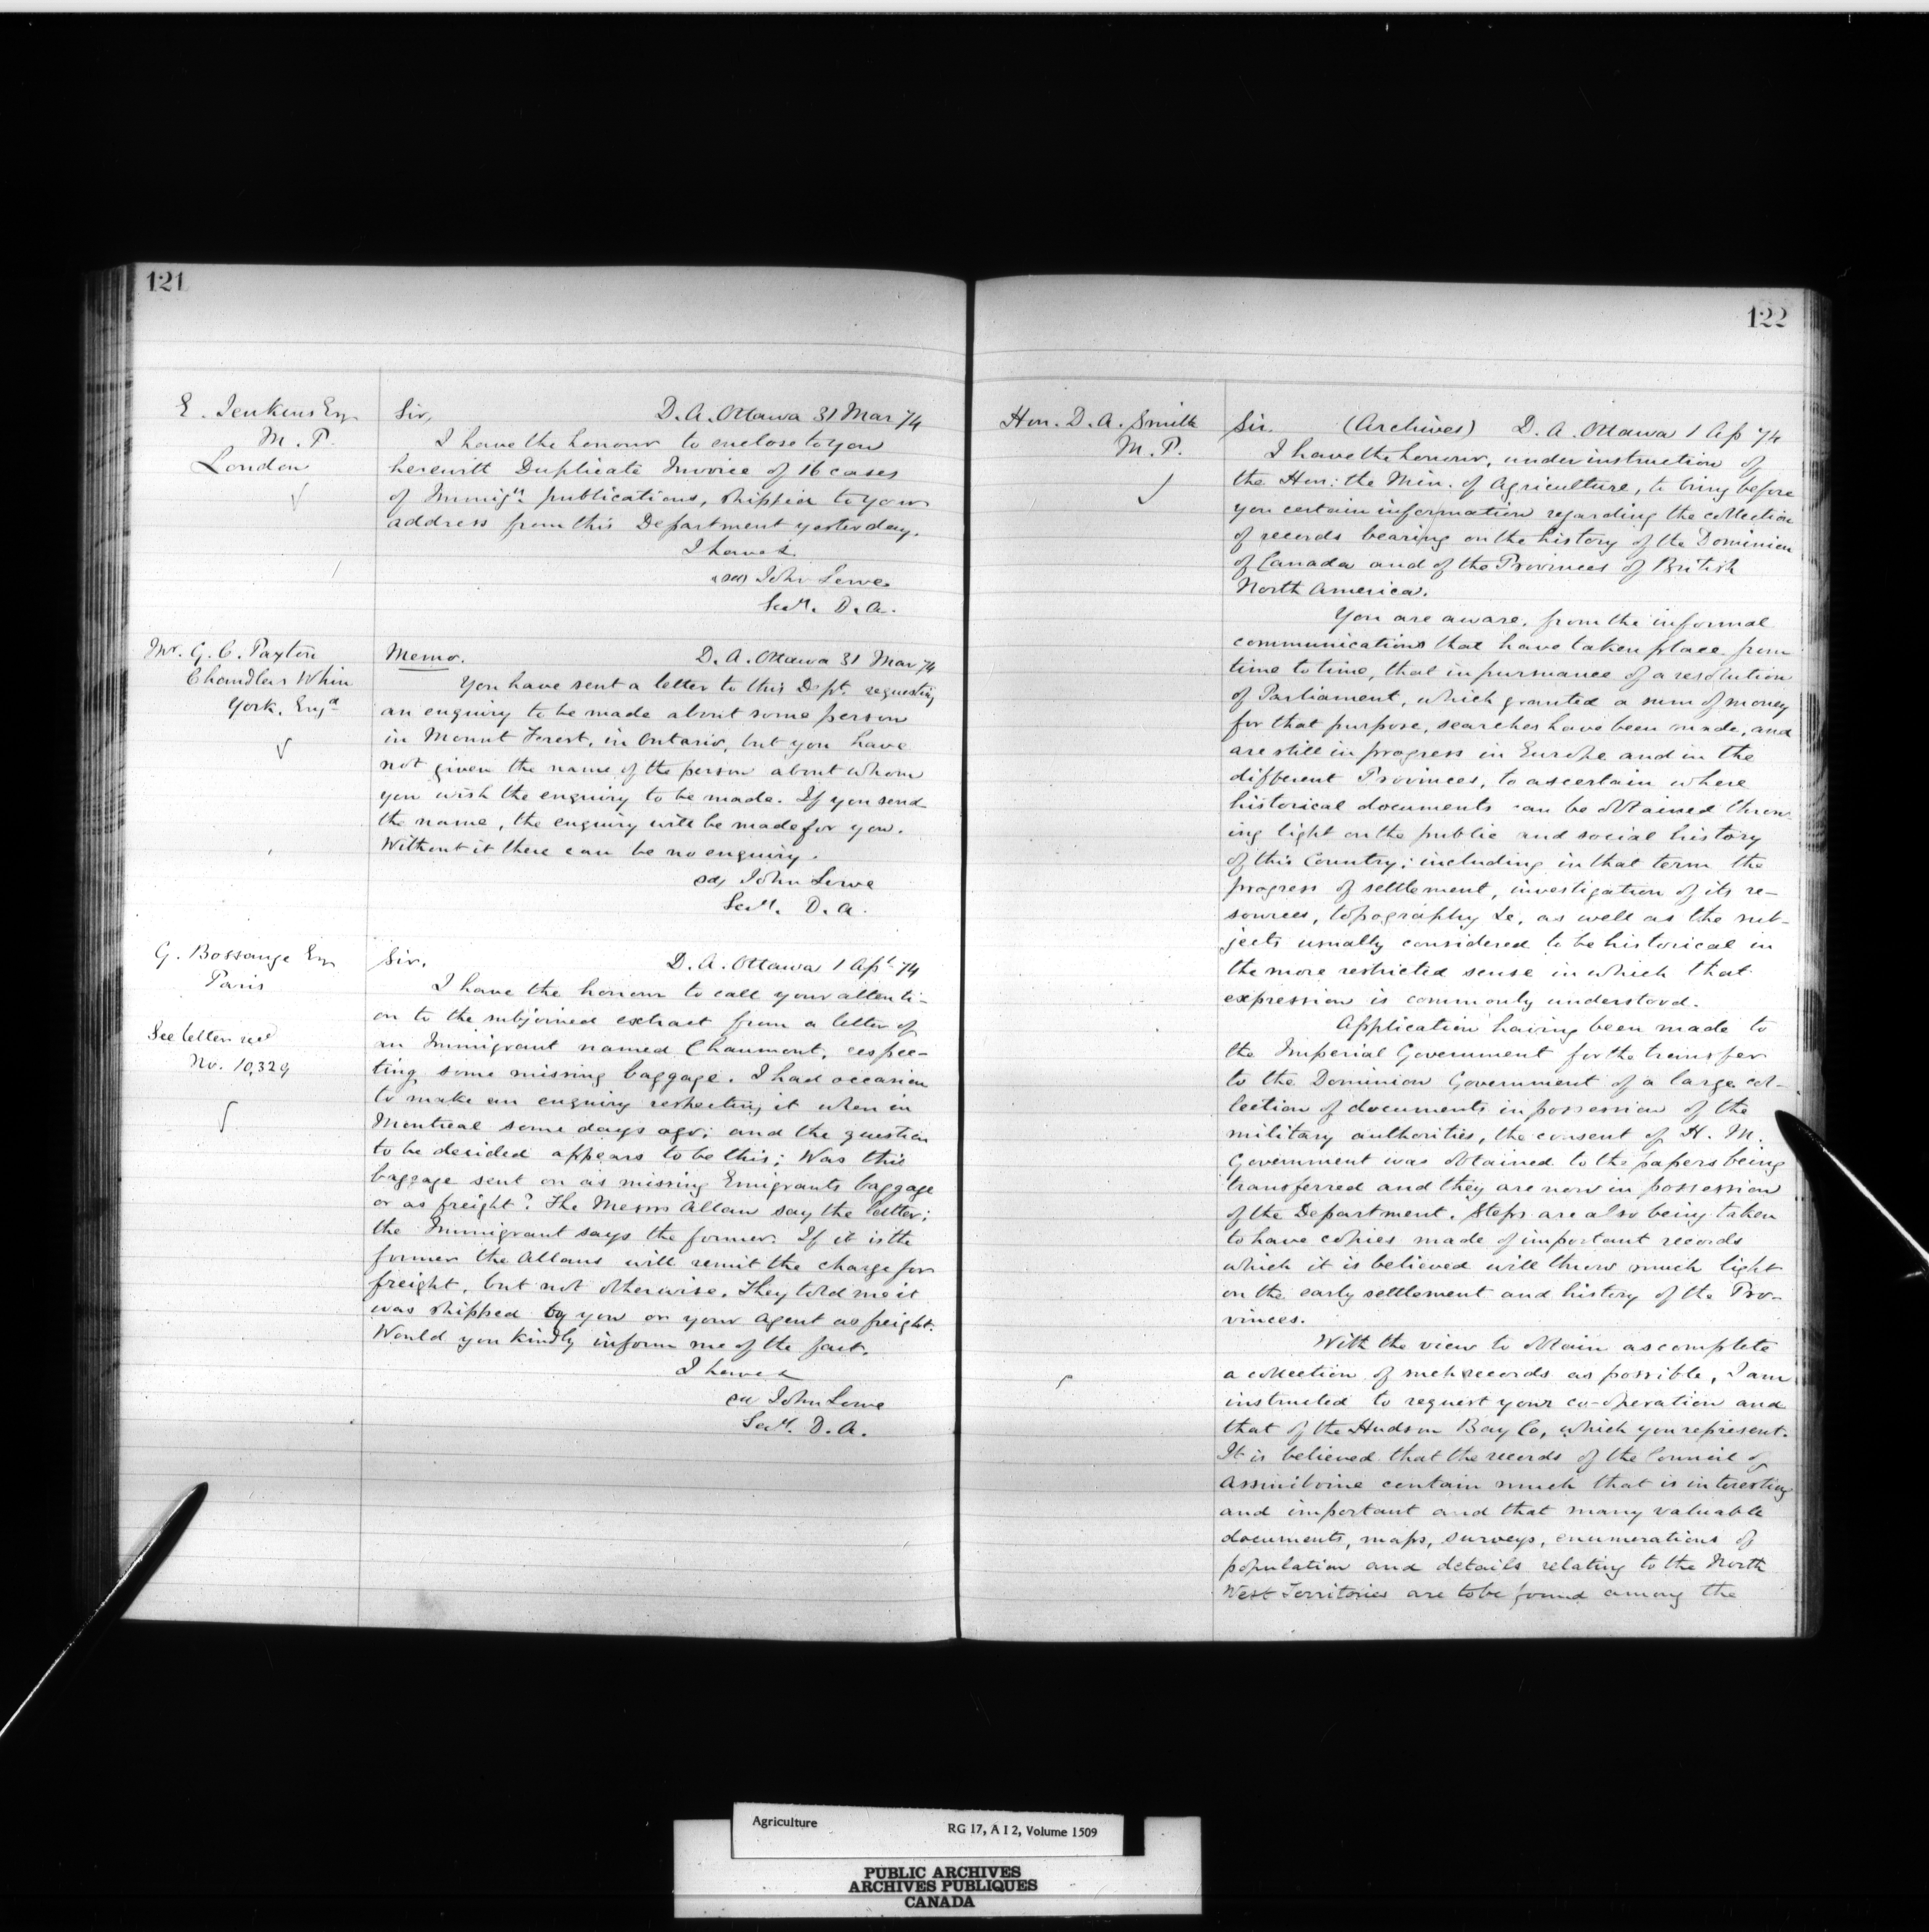 121
E. Jenkins Esq
M. P.
London
Sir, D. A. Ottawa 31 Mar 74
I have the honour to enclose to you
herewith Duplicate Invoice of 16 cases
of Immign. publications, shipped to your
address from this Department yesterday.
I have &
(sd) John Lowe
Secy. D. A.
Mr. G. C. Paxton
Chandlers Whin
York. Engd
Memo. D. A. Ottawa 31 Mar 74
You have sent a letter to this Dept. requesting
an enquiry to be made about some person
in Mount Forest, in Ontario, but you have
not given the name of the person about whom
you wish the enquiry to be made. If you send
the name, the enquiry will be made for you.
Without it there can be no enquiry.
sd, John Lowe
Secy. D. A.
G. Bossange Esq
Paris
See letter recd
No. 10,329
Sir. D. A. Ottawa 1 Apl 74
I have the honour to call your attenti-
on to the subjoined extract from a letter of
an Immigrant named Chaumont, respec-
ting some missing baggage. I had occasion
to make an enquiry respecting it when in
Montreal some days ago; and the question
to be decided appears to be this; Was this
baggage sent on as missing Emigrants baggage
or as freight? The Messrs Allan say the latter;
the Immigrant says the former. If it is the
former the Allans will remit the charge for
freight, but not otherwise. They told me it
was shipped by you or your agent as freight.
Would you kindly inform me of the fact.
I have &
sd John Lowe
Secy. D. A.
122
Hon. D. A. Smith
M. P.
Sir. (Archives) D. A. Ottawa 1 Ap 74
I have the honour, under instruction of
the Hon: the Min. of Agriculture, to bring before
you certain information regarding the collection
of records bearing on the history of the Dominion
of Canada and of the Provinces of British
North America.
You are aware, from the informal
communications that have taken place from
time to time, that in pursuance of a resolution
of Parliament, which granted a sum of money
for that purpose, searches have been made, and
are still in progress in Europe and in the
different Provinces, to ascertain where
historical documents can be obtained throw-
ing light on the public and social history
of this Country; including in that term the
progress of settlement, investigation of its re-
sources, topography &c, as well as the sub-
jects usually considered to be historical in
the more restricted sense in which that
expression is commonly understood.
Application having been made to
the Imperial Government for the transfer
to the Dominion Government of a large col-
lection of documents in possession of the
military authorities, the consent of H. M.
Government was obtained to the papers being
transferred and they are now in possession
of the Department. Steps are also being taken
to have copies made of important records
which it is believed will throw much light
on the early settlement and history of the Pro-
vinces.
With the view to obtain as complete
a collection of such records as possible, I am
instructed to request your co-operation and
that of the Hudson Bay Co, which you represent.
It is believed that the records of the Council of
Assiniboine contain much that is interesting
and important and that many valuable
documents, maps, surveys, enumerations of
population and details relating to the North
West Territories are to be found among the
Agriculture RG 17, A I 2, Volume 1509
PUBLIC ARCHIVES
ARCHIVES PUBLIQUES
CANADA